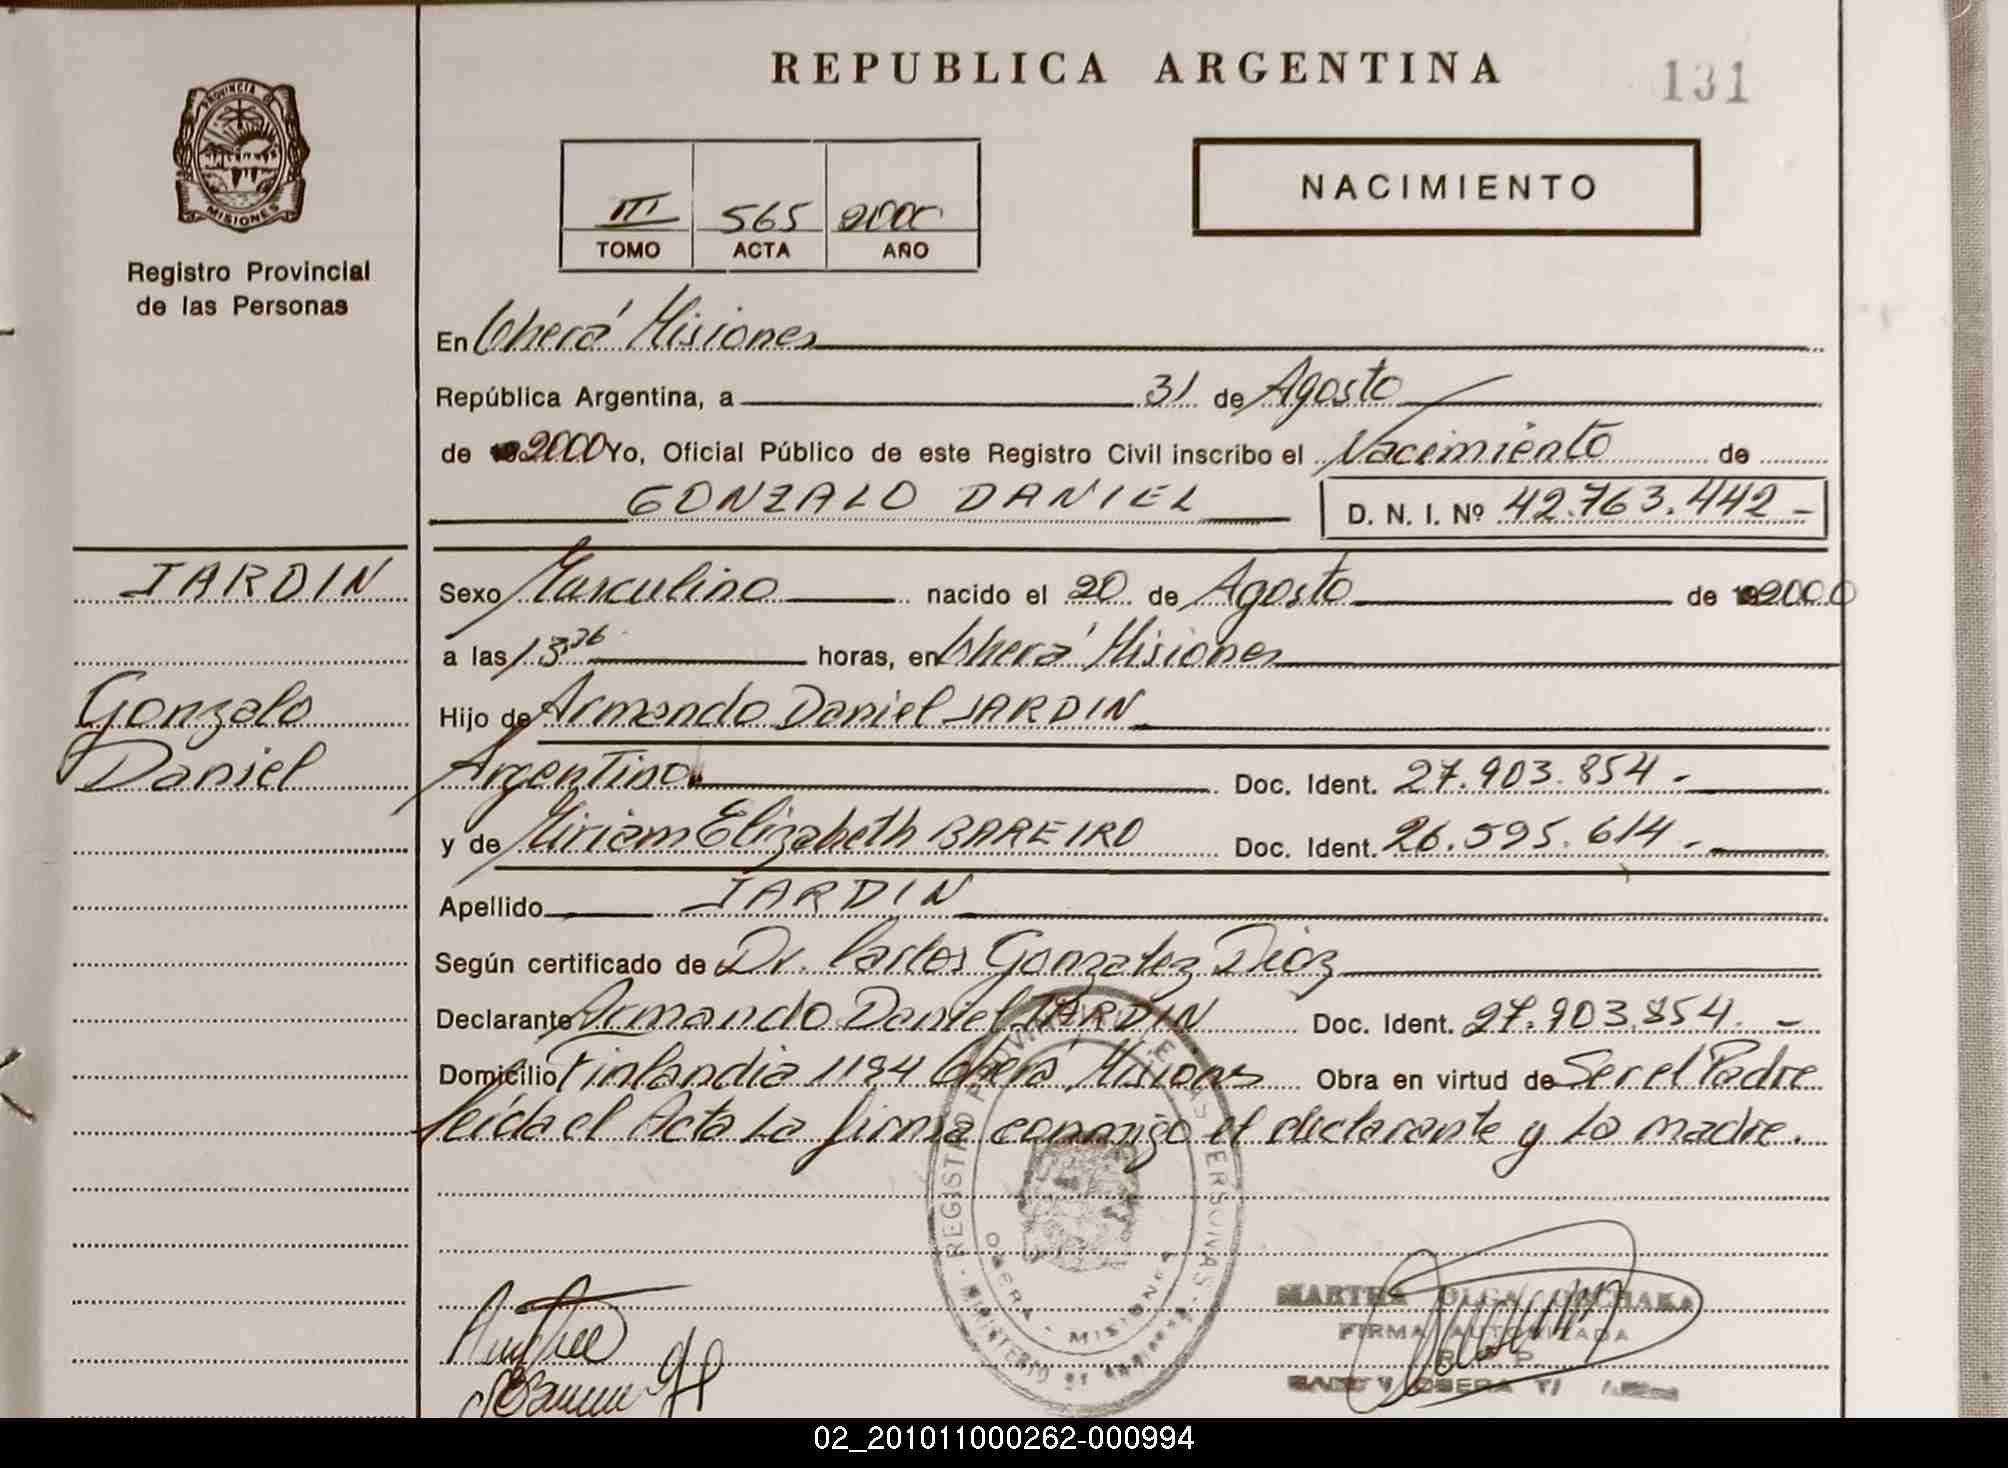 REPUBLICA ARGENTINA
131
PROVINCIA DE
MISIONES
Registro Provincial
de las Personas
NACIMIENTO
III 565 2000
TOMO ACTA AÑO
En Oberá Misiones
República Argentina, a 31 de Agosto
de 192000 Yo, Oficial Público de este Registro Civil inscribo el Nacimiento de
GONZALO DANIEL D. N. I. Nº 42.763.442-
JARDIN
Gonzalo
Daniel
Sexo Masculino nacido el 20 de Agosto de 192000
a las 13:36 horas, en Oberá Misiones
Hijo de Armando Daniel JARDIN
Argentino Doc. Ident. 27.903.854.-
y de Miriam Elizabeth BAREIRO Doc. Ident. 26.595.614.-
Apellido JARDIN
Según certificado de Dr. Carlos Gonzalez Dioz
Declarante Armando Daniel JARDIN Doc. Ident. 27.903.854.-
Domicilio Finlandia 1194 Oberá, Misiones Obra en virtud de Ser el Padre
leída el Acta La firma conmigo el declarante y La madre.
REGISTRO PROVINCIAL DE LAS PERSONAS
OBERA - MISIONES
MINISTERIO DE GOBIERNO
MARTHA OLGA
FIRMA AUTORIZADA
R. P. P.
OBERA
02_201011000262-000994